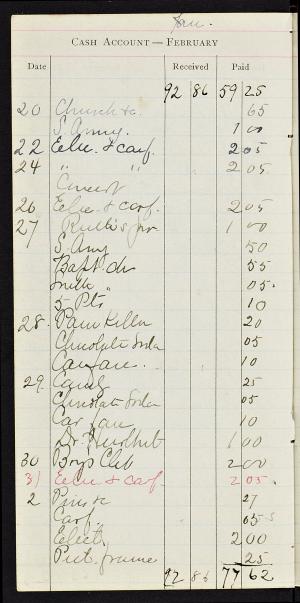 Jan.
CASH ACCOUNT — FEBRUARY
Date Received Paid
92 86 59 25
20 Church &c. 65
S. Army. 1 00
22 Elec. & carf. 2 05
24 " " 2 05
26 Elec. & carf. 2 05
27 1 00
S. Army 50
Bapt. ch 55
" 05
5 Pts 10
28. Pain Killer 20
Chocolate Soda 05
Carfare 10
29 Candy 25
Chocolate Soda 05
Car fare 10
Dr. Hurlbut 1 00
30 Boys Club 2 00
31 Elec & carf 2 05
2 27
Carf. 05
Elect. 2 00
Pict. frame 25
92 86 77 62